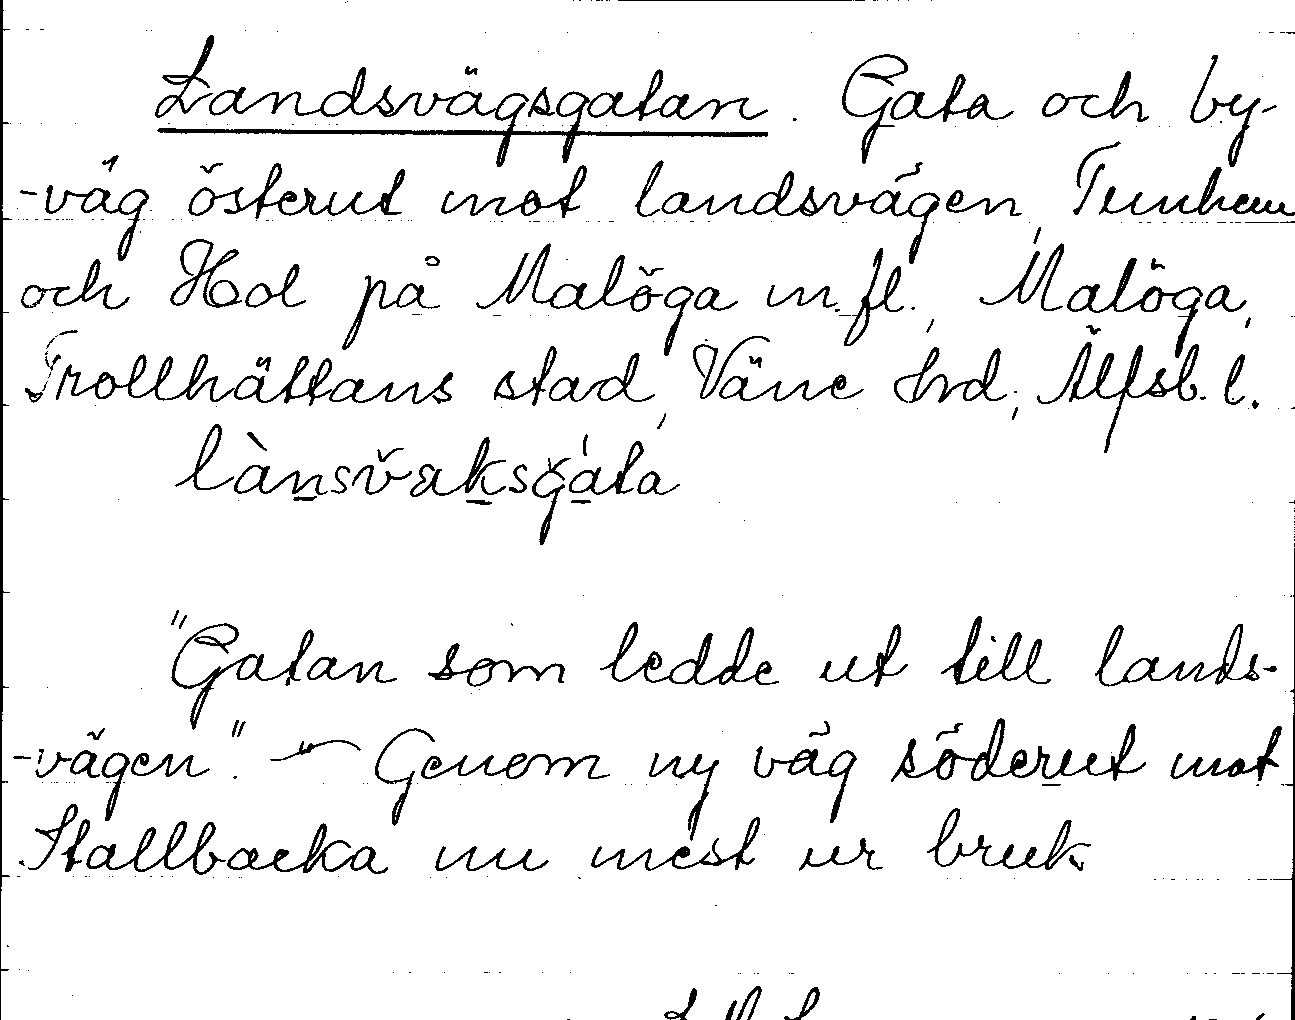 Landsvägsgatan. Gata och by-
-väg österut mot landsvägen, Tunhem
och Hol på Malöga m.fl., Malöga,
Trollhättans stad, Väne hrd, Älfsb. l.
lànsvaksgata
"Gatan som ledde ut till lands-
-vägen". — Genom ny väg söderut mot
Stallbacka nu mest ur bruk